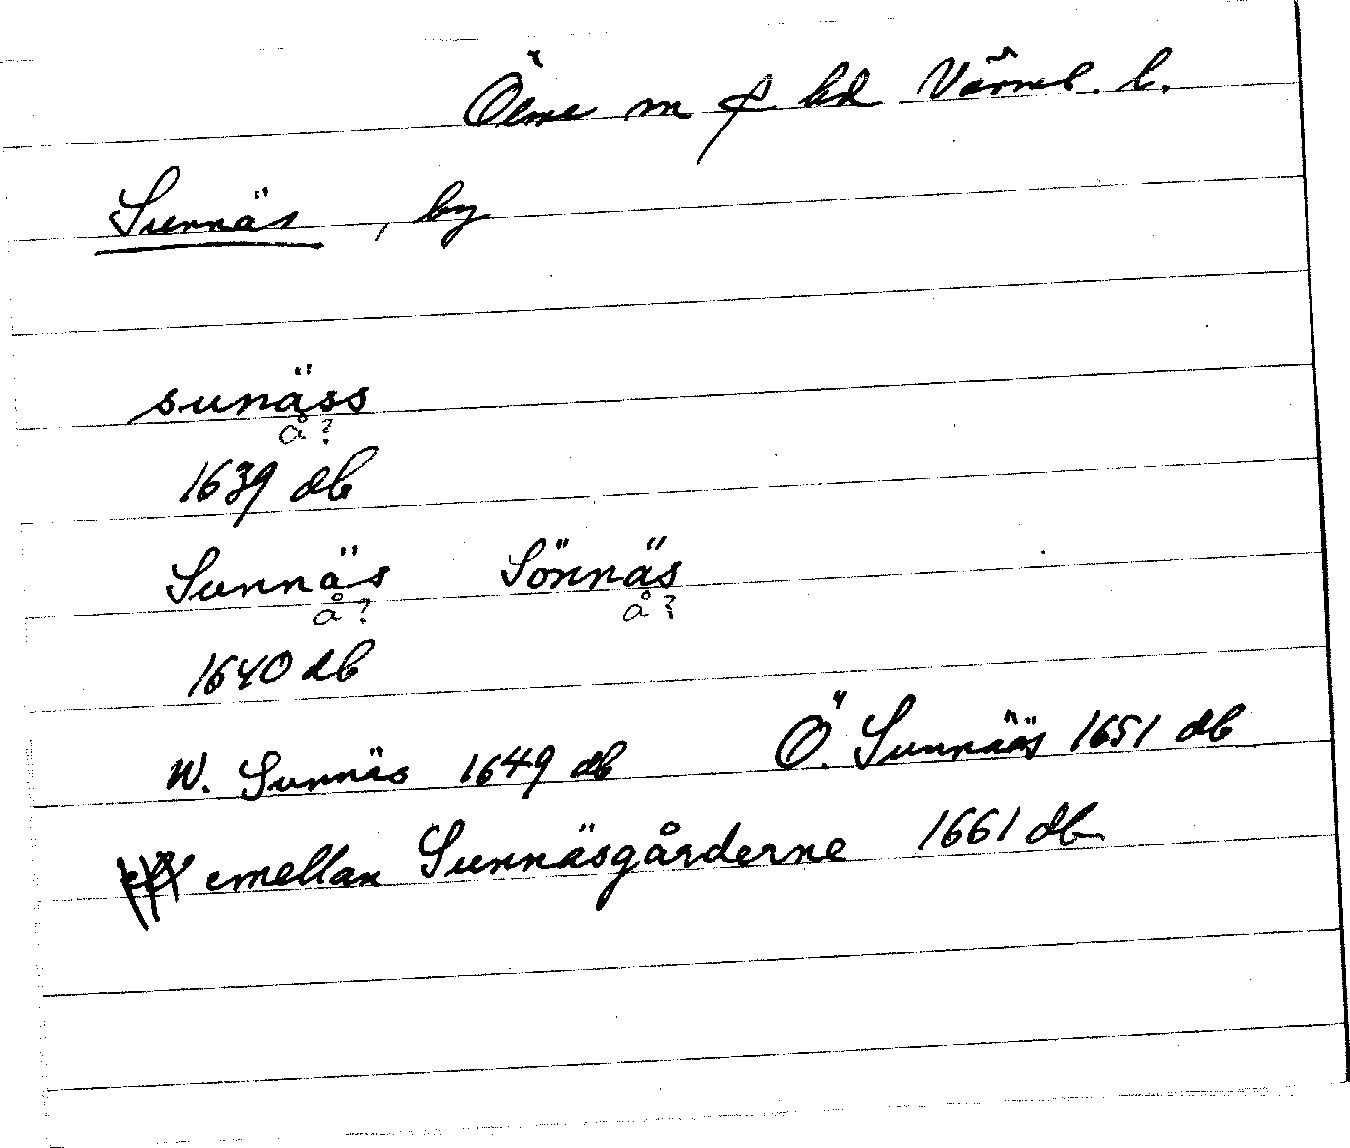 Ölme sn o hd Värml. l.
Sunnäs, by
sunäss
å?
1639 db
Sunnäs Sönnäs
å? å?
1640 db
W. Sunnäs 1649 db Ö. Sunnääs 1651 db
emellan Sunnäsgårderne 1661 db